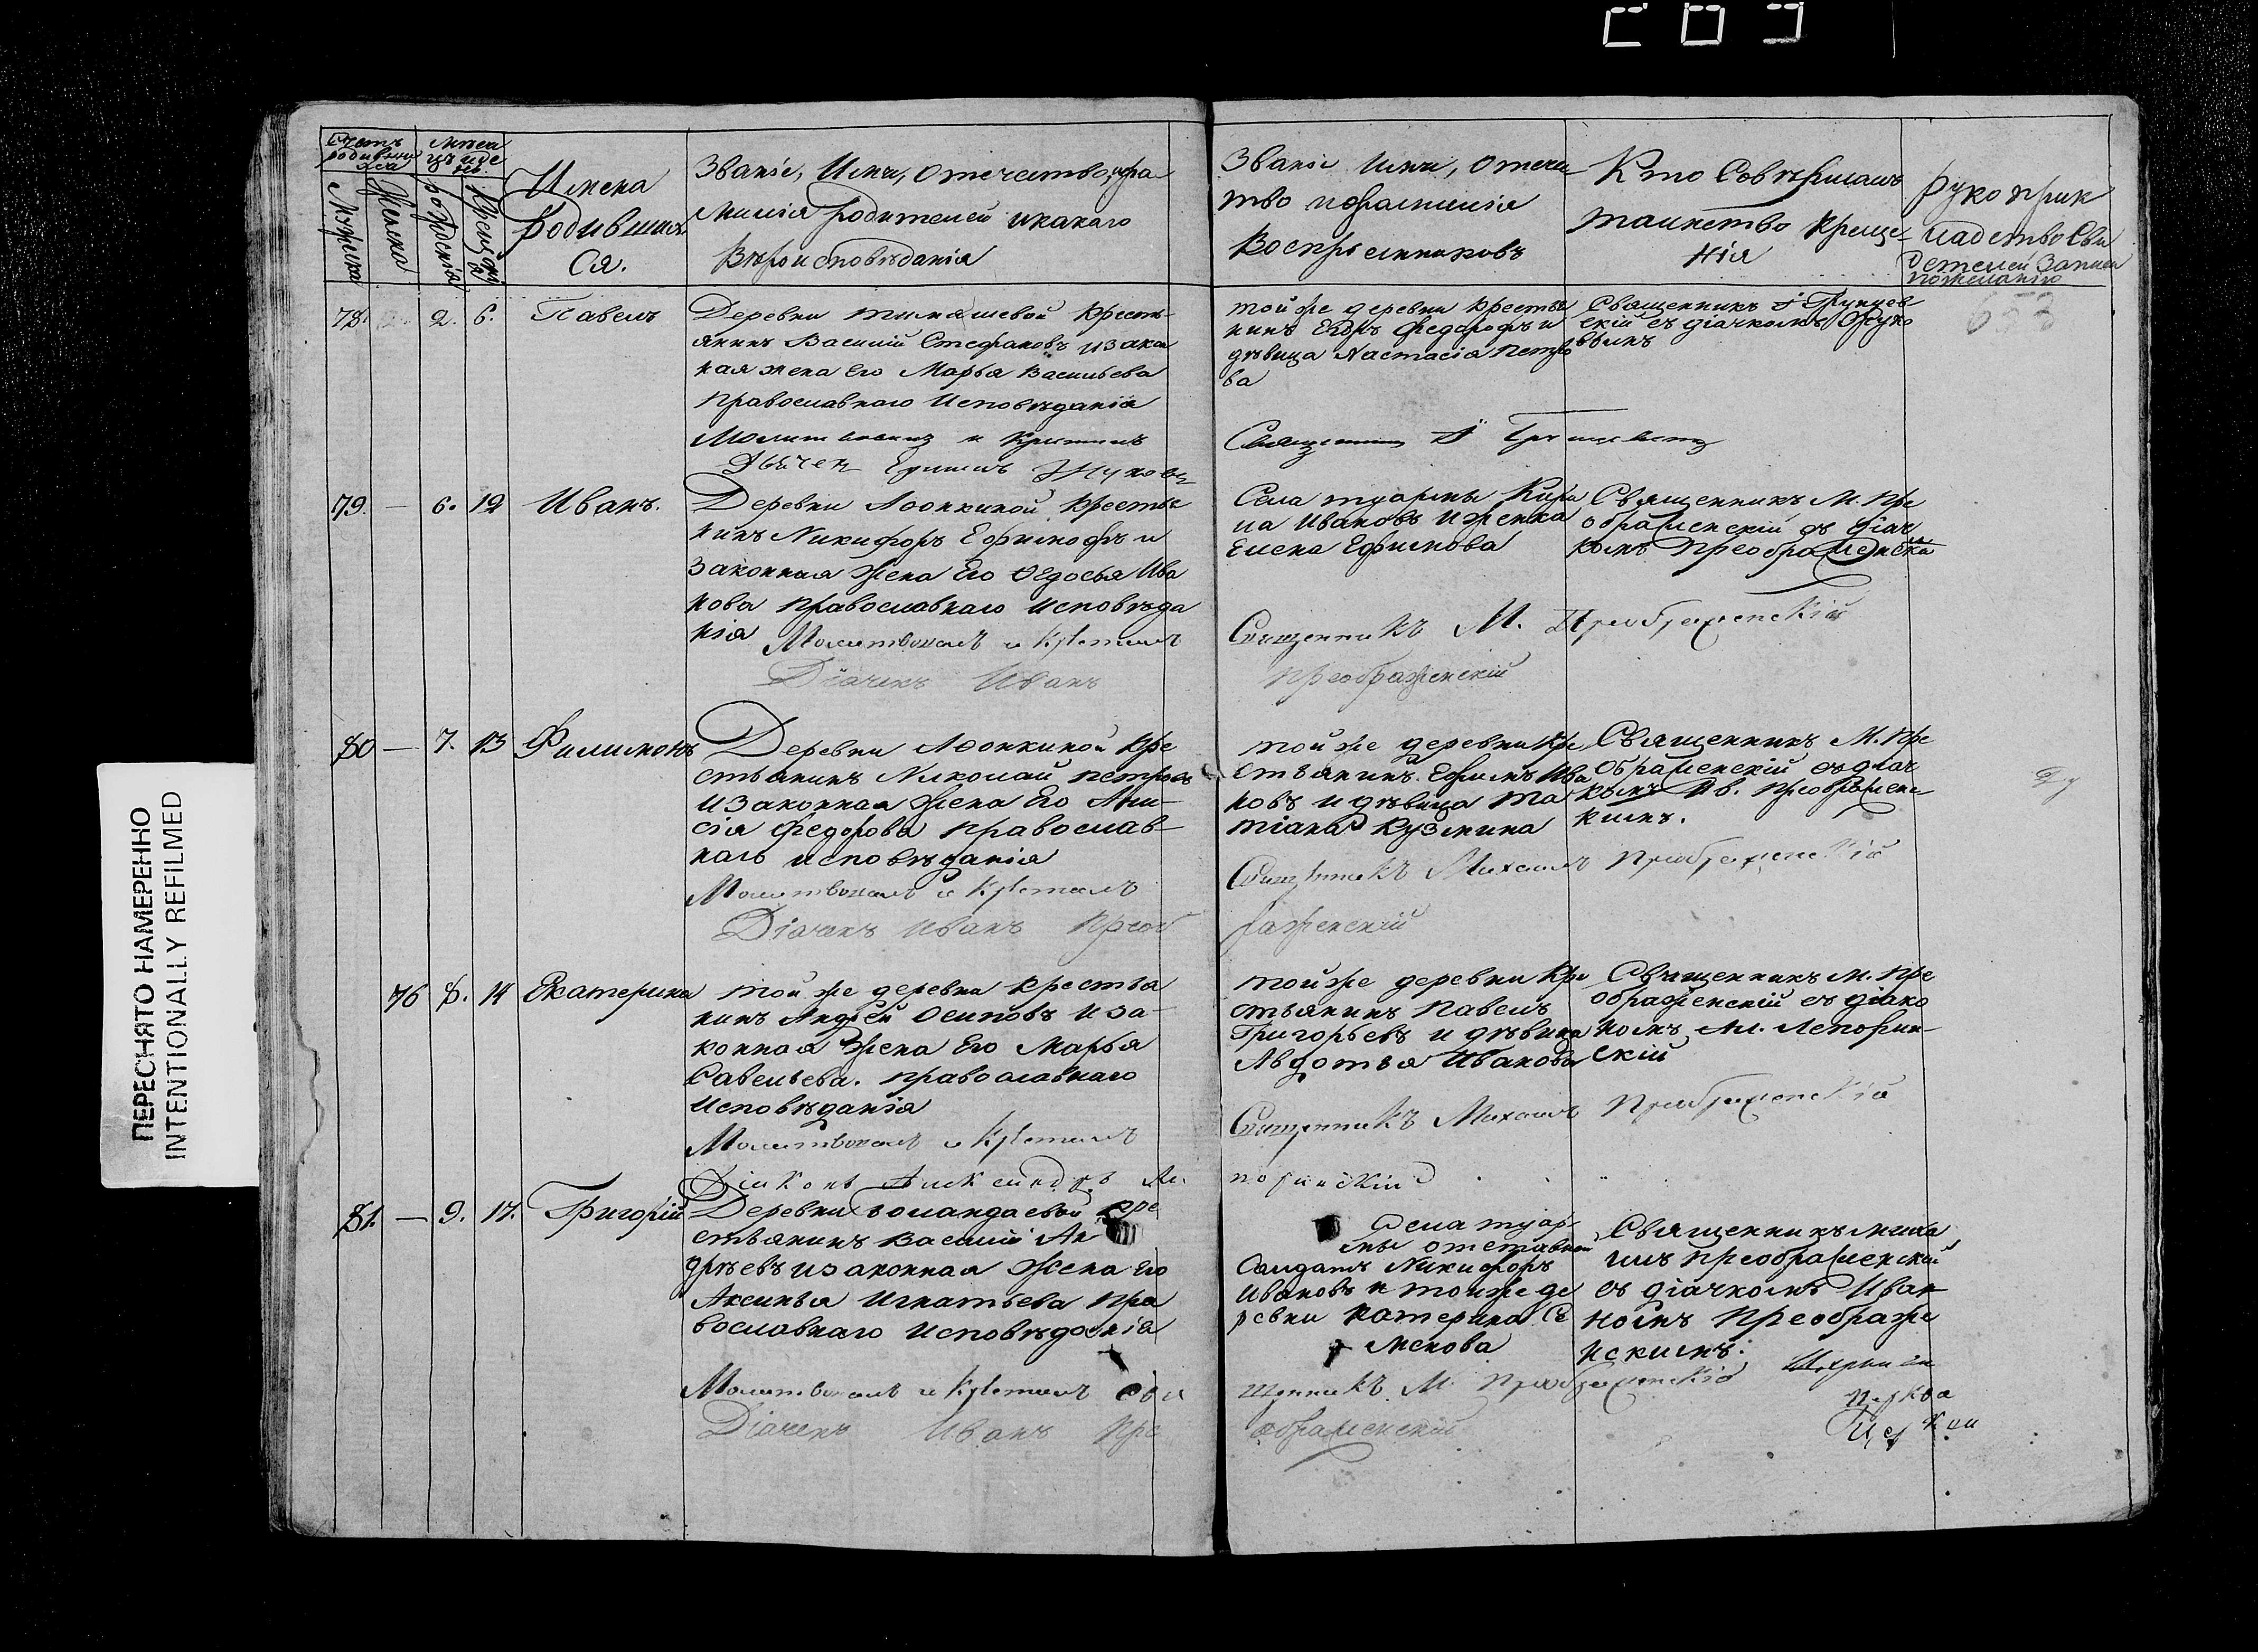 Счетъ
родивши
хся
Мѣся
цъ и де
нь.
Мужеска
Женска
Рожденія
Крещенія
Имена
Родивших
ся.
Званіе, Имя, Отечество, и фа
милія родителей и какаго
Вѣроисповѣданія
Званіе Имя, Отече
тво и фамилія
Воспріемниковъ
Кто Совѣршалъ
таинство креще
нія
Руко прик
ладство Сви
детелей Записи
по желанію
78. 2. 6. Павелъ
Деревни Тимяшевой Кресть-
янинъ Василій Стефановъ и зако
ная жена Его Марья Васильева
православнаго Исповѣданія
Молитвовалъ и Крестилъ
Дьячекъ Ефимъ Жуковъ
той же деревни крестья
нинъ Федоровъ и
дѣвица Настасія Петро
ва
Священникъ
Священникъ
скій съ діачкомъ Жуко
вымъ
79. — 6. 12 Иванъ.
Деревни Афонкиной Крестья
нинъ Никифоръ Ефимовъ и
Законная Жена Его Ѳедосья Ива
нова православнаго Исповѣда
нія Молитвовалъ и Крестилъ
Діачекъ Иванъ
Села туармы Кири
ла Ивановъ и женка
Елена Ефимова
Священникъ М. Преображенскій
преображенскій
Священникъ М. Пре
ображенскій съ діач
комъ Преображенски
80 — 7. 13 Филимонъ
Деревни Афонкиной Кре
стьянинъ Николай Петровъ
и Законная Жена Его Ани-
сія Федорова Православ-
наго исповѣданія
Молитвовалъ и Крестилъ
Діачекъ Иванъ Преоб
той же деревни Кре
стьянинъ Ефимъ Ива
новъ и дѣвица Та
тіана Кузмина
Священникъ Михаилъ Преображенскій
раженскій
Священникъ М. Пре
ображенскій съ діач
комъ Ив. Преображенс
кимъ.
76 8. 14 Екатерина
той же деревни крестья
нинъ Андрей Осиповъ и за-
конная Жена Его Марья
Савельева. православнаго
Исповѣданія
Молитвовалъ и Крестилъ
Діаконъ Александръ Ле
той же деревни Кре
стьянинъ Павелъ
Григорьевъ и дѣвица
Авдотья Иванова
Священникъ Михаилъ Преображенскій
поринскій
Священникъ М. Пре
ображенскій съ діако
номъ Ал. Лепорин
скій
81. — 9. 17. Григорій
Деревни кре
стьянинъ Василій Ан
дрѣевъ и законная Жена Его
Аксинья Игнатьева Пра
вославнаго Исповѣданія
Молитвовалъ и Крестилъ Свя
Діачекъ Иванъ Пре
Села туар-
мы отставной
Солдатъ Никифоръ
Ивановъ и тойже де
ревни Катерина Се
менова
щенникъ М. Преображенскій
ображенскій
Священникъ Миха
илъ Преображенскій
съ діачкомъ Иван
номъ Преображе
нскимъ.
ПЕРЕСНЯТО НАМЕРЕННО
INTENTIONALLY REFILMED